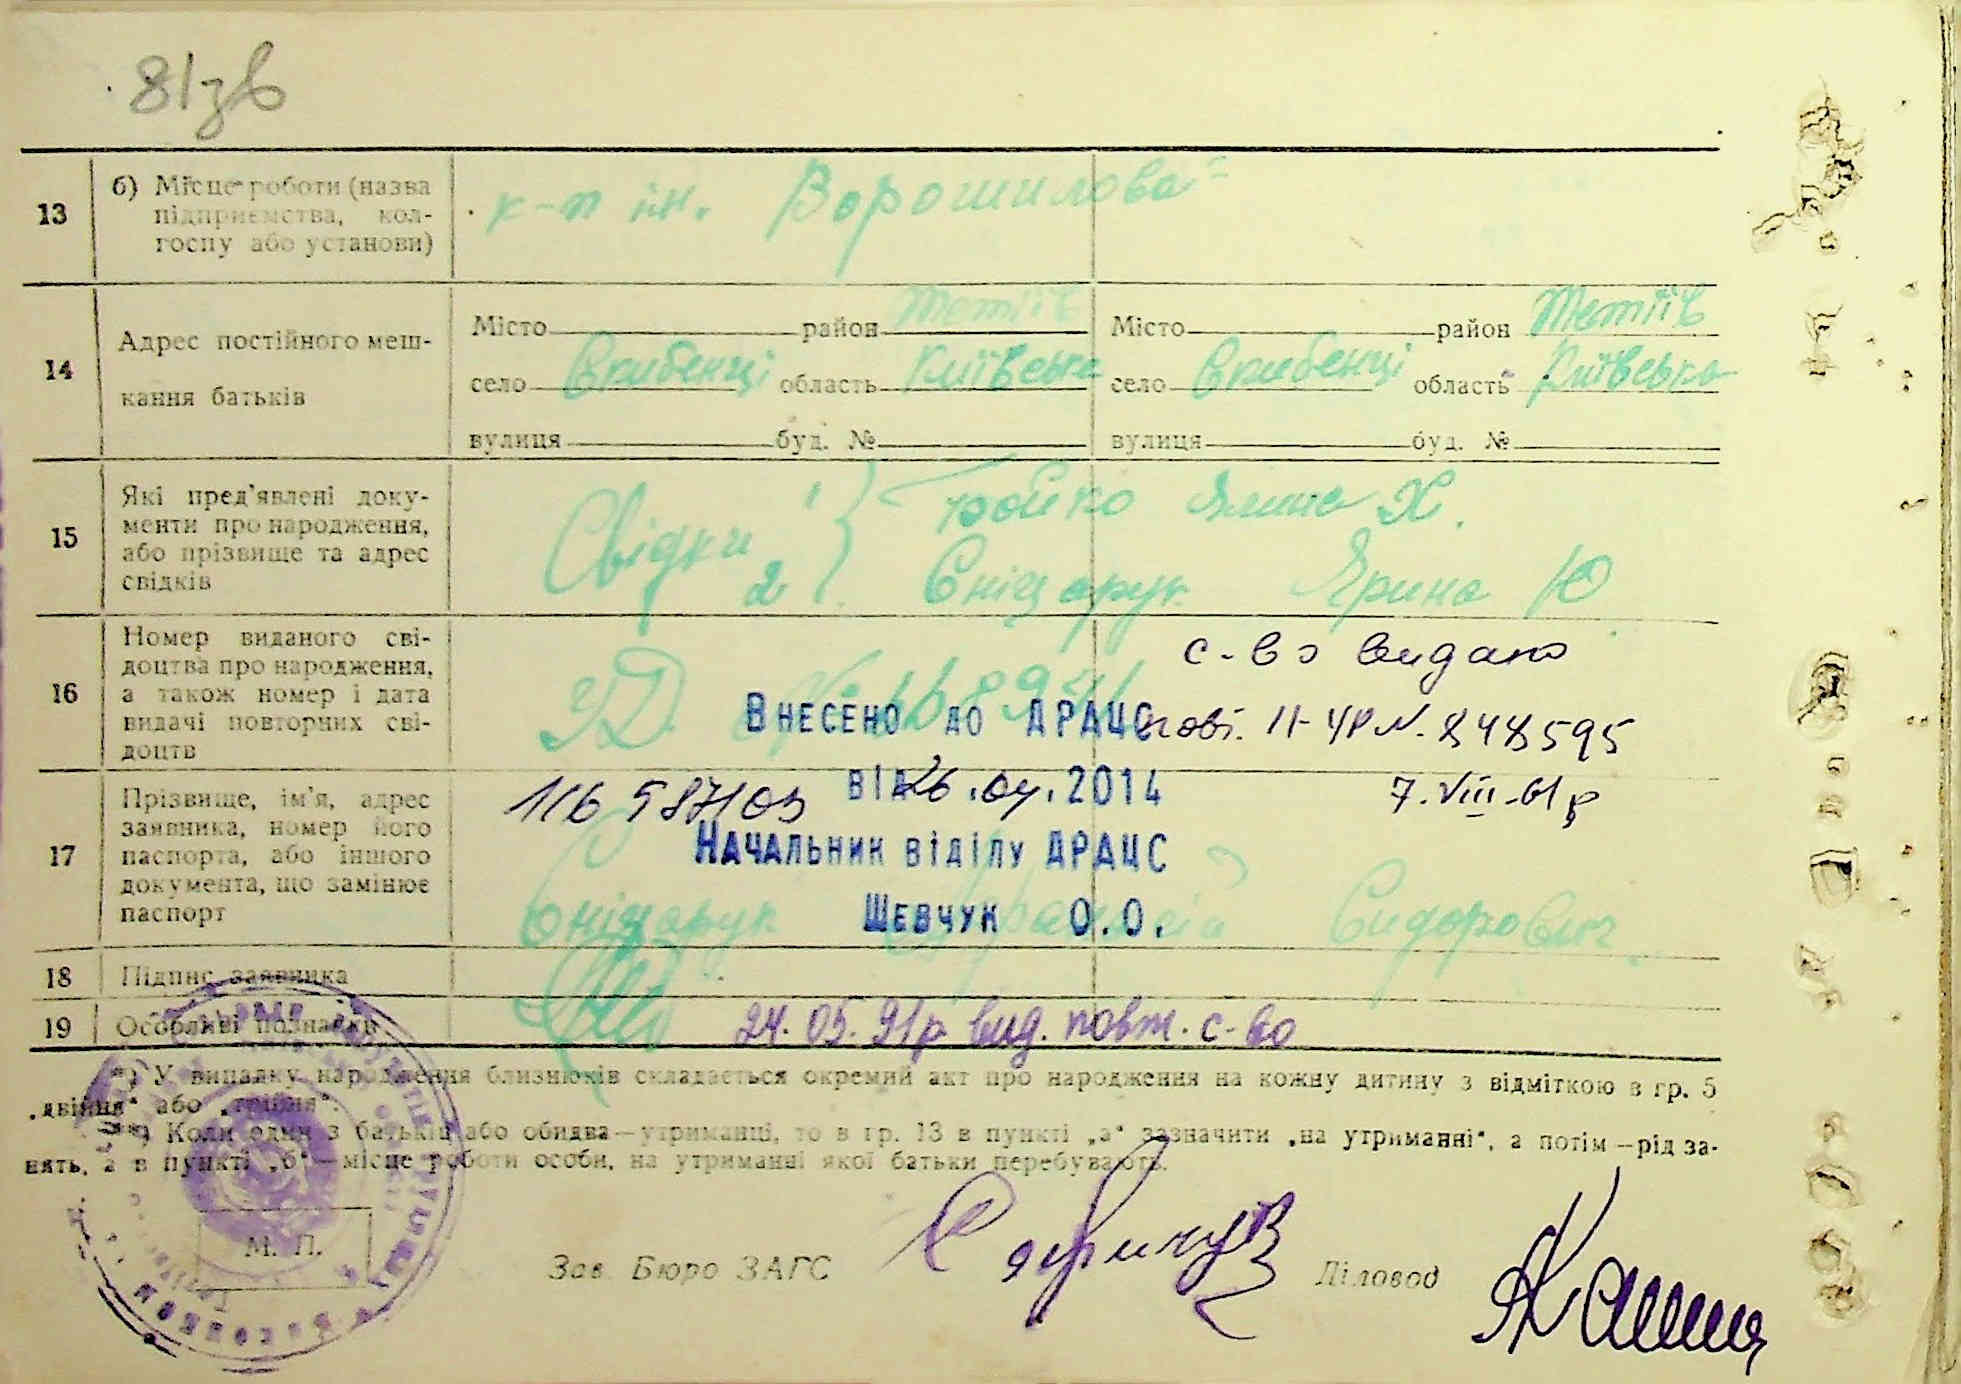 81зв
13 б) Місце роботи (назва
підприємства, кол-
госпу або установи)
к-п ім. Ворошилова
14 Адрес постійного меш-
кання батьків
Місто район Тетіїв Місто район Тетіїв
село Скибенці область Київська село Скибенці область Київська
вулиця буд. № вулиця буд. №
15 Які пред'явлені доку-
менти про народження,
або прізвище та адрес
свідків
Свідки 1 Бойко Ялина Х.
2 Сніцарук Ярина Ю
16 Номер виданого сві-
доцтва про народження,
а також номер і дата
видачі повторних сві-
доцтв
с-во видано
повт. II-УР N. 848595
7.VIII-61р
Внесено до ДРАЦС
від 26.04.2014
Начальник відділу ДРАЦС
Шевчук О.О.
17 Прізвище, ім'я, адрес
заявника, номер його
паспорта, або іншого
документа, що замінює
паспорт
Сніцарук Сидорович
18 Підпис заявника
19 Особливі познаки
24.05.91р вид. повт. с-во
*) У випадку народження близнюків складається окремий акт про народження на кожну дитину з відміткою в гр. 5
„двійня“ або „трійня“.
*) Коли один з батьків або обидва—утриманці, то в гр. 13 в пункті „а“ зазначити „на утриманні“, а потім—рід за-
нять, а в пункті „б“—місце роботи особи, на утриманні якої батьки перебувають.
М. П.
Зав. Бюро ЗАГС Діловод